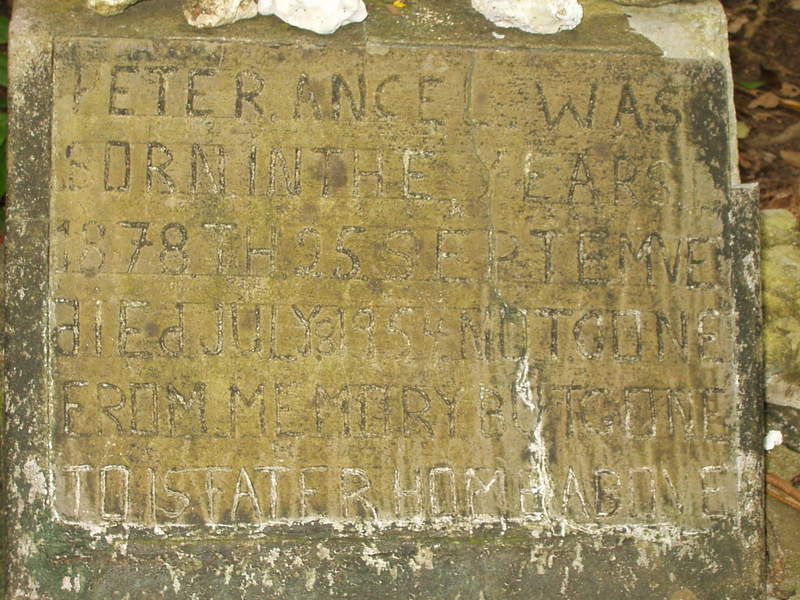 PETER. ANCEL. WAS
BORN IN THE. YEARS
1878 TH. 25. SEPTEMVE
dIEd JULY. 8 1954. NOT GONE
FROM. MEMORY BUT GONE
TO IS FATER HOME ABOVE